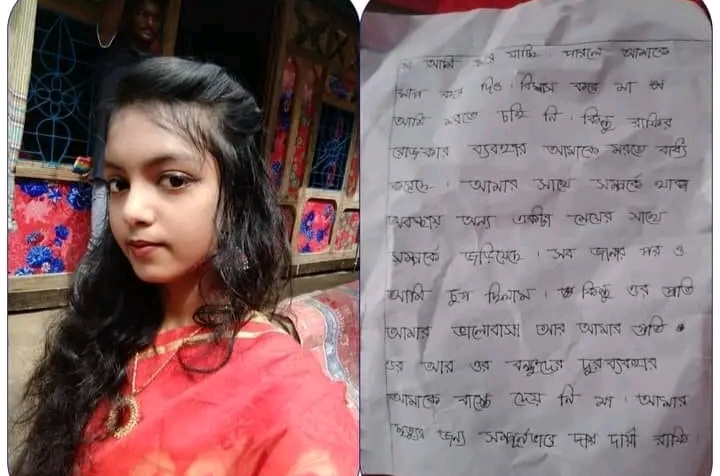 মা আমি মরে যাচ্ছি । পারলে আমাকে
মাপ করে দিও । বিশ্বাস করো মা
আমি মরতে চাই নি । কিন্তু রাফির
রোজকার ব্যবহার আমাকে মরতে বাধ্য
করেছে । আমার সাথে সম্পর্কে থাকা
অবস্থায় অন্য একটা মেয়ের সাথে
সম্পর্কে জড়িয়েছে । সব জানার পর ও
আমি চুপ ছিলাম । কিন্তু ওর প্রতি
আমার ভালোবাসা আর আমার প্রতি
ওর আর ওর বন্ধুদের দুরব্যবহার
আমাকে বাচতে দেয় নি মা । আমার
মৃত্যুর জন্য সম্পূর্নভাবে দায় দায়ী রাফি